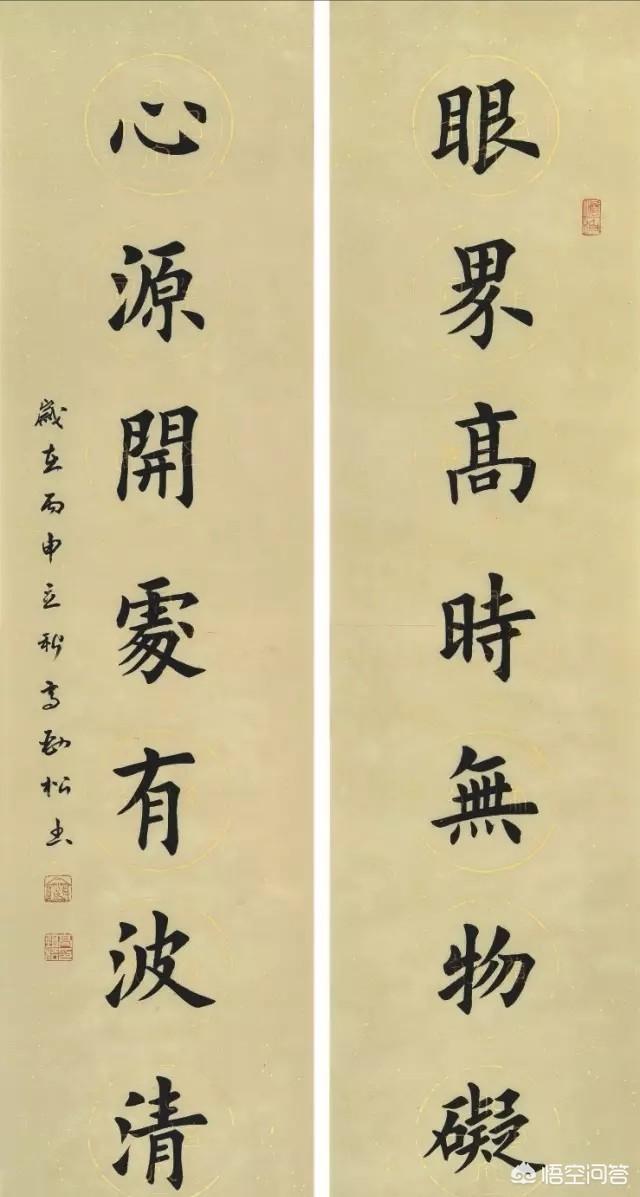 眼界髙時無物礙
心源開處有波清
歲在丙申立秋高勁松書
悟空问答